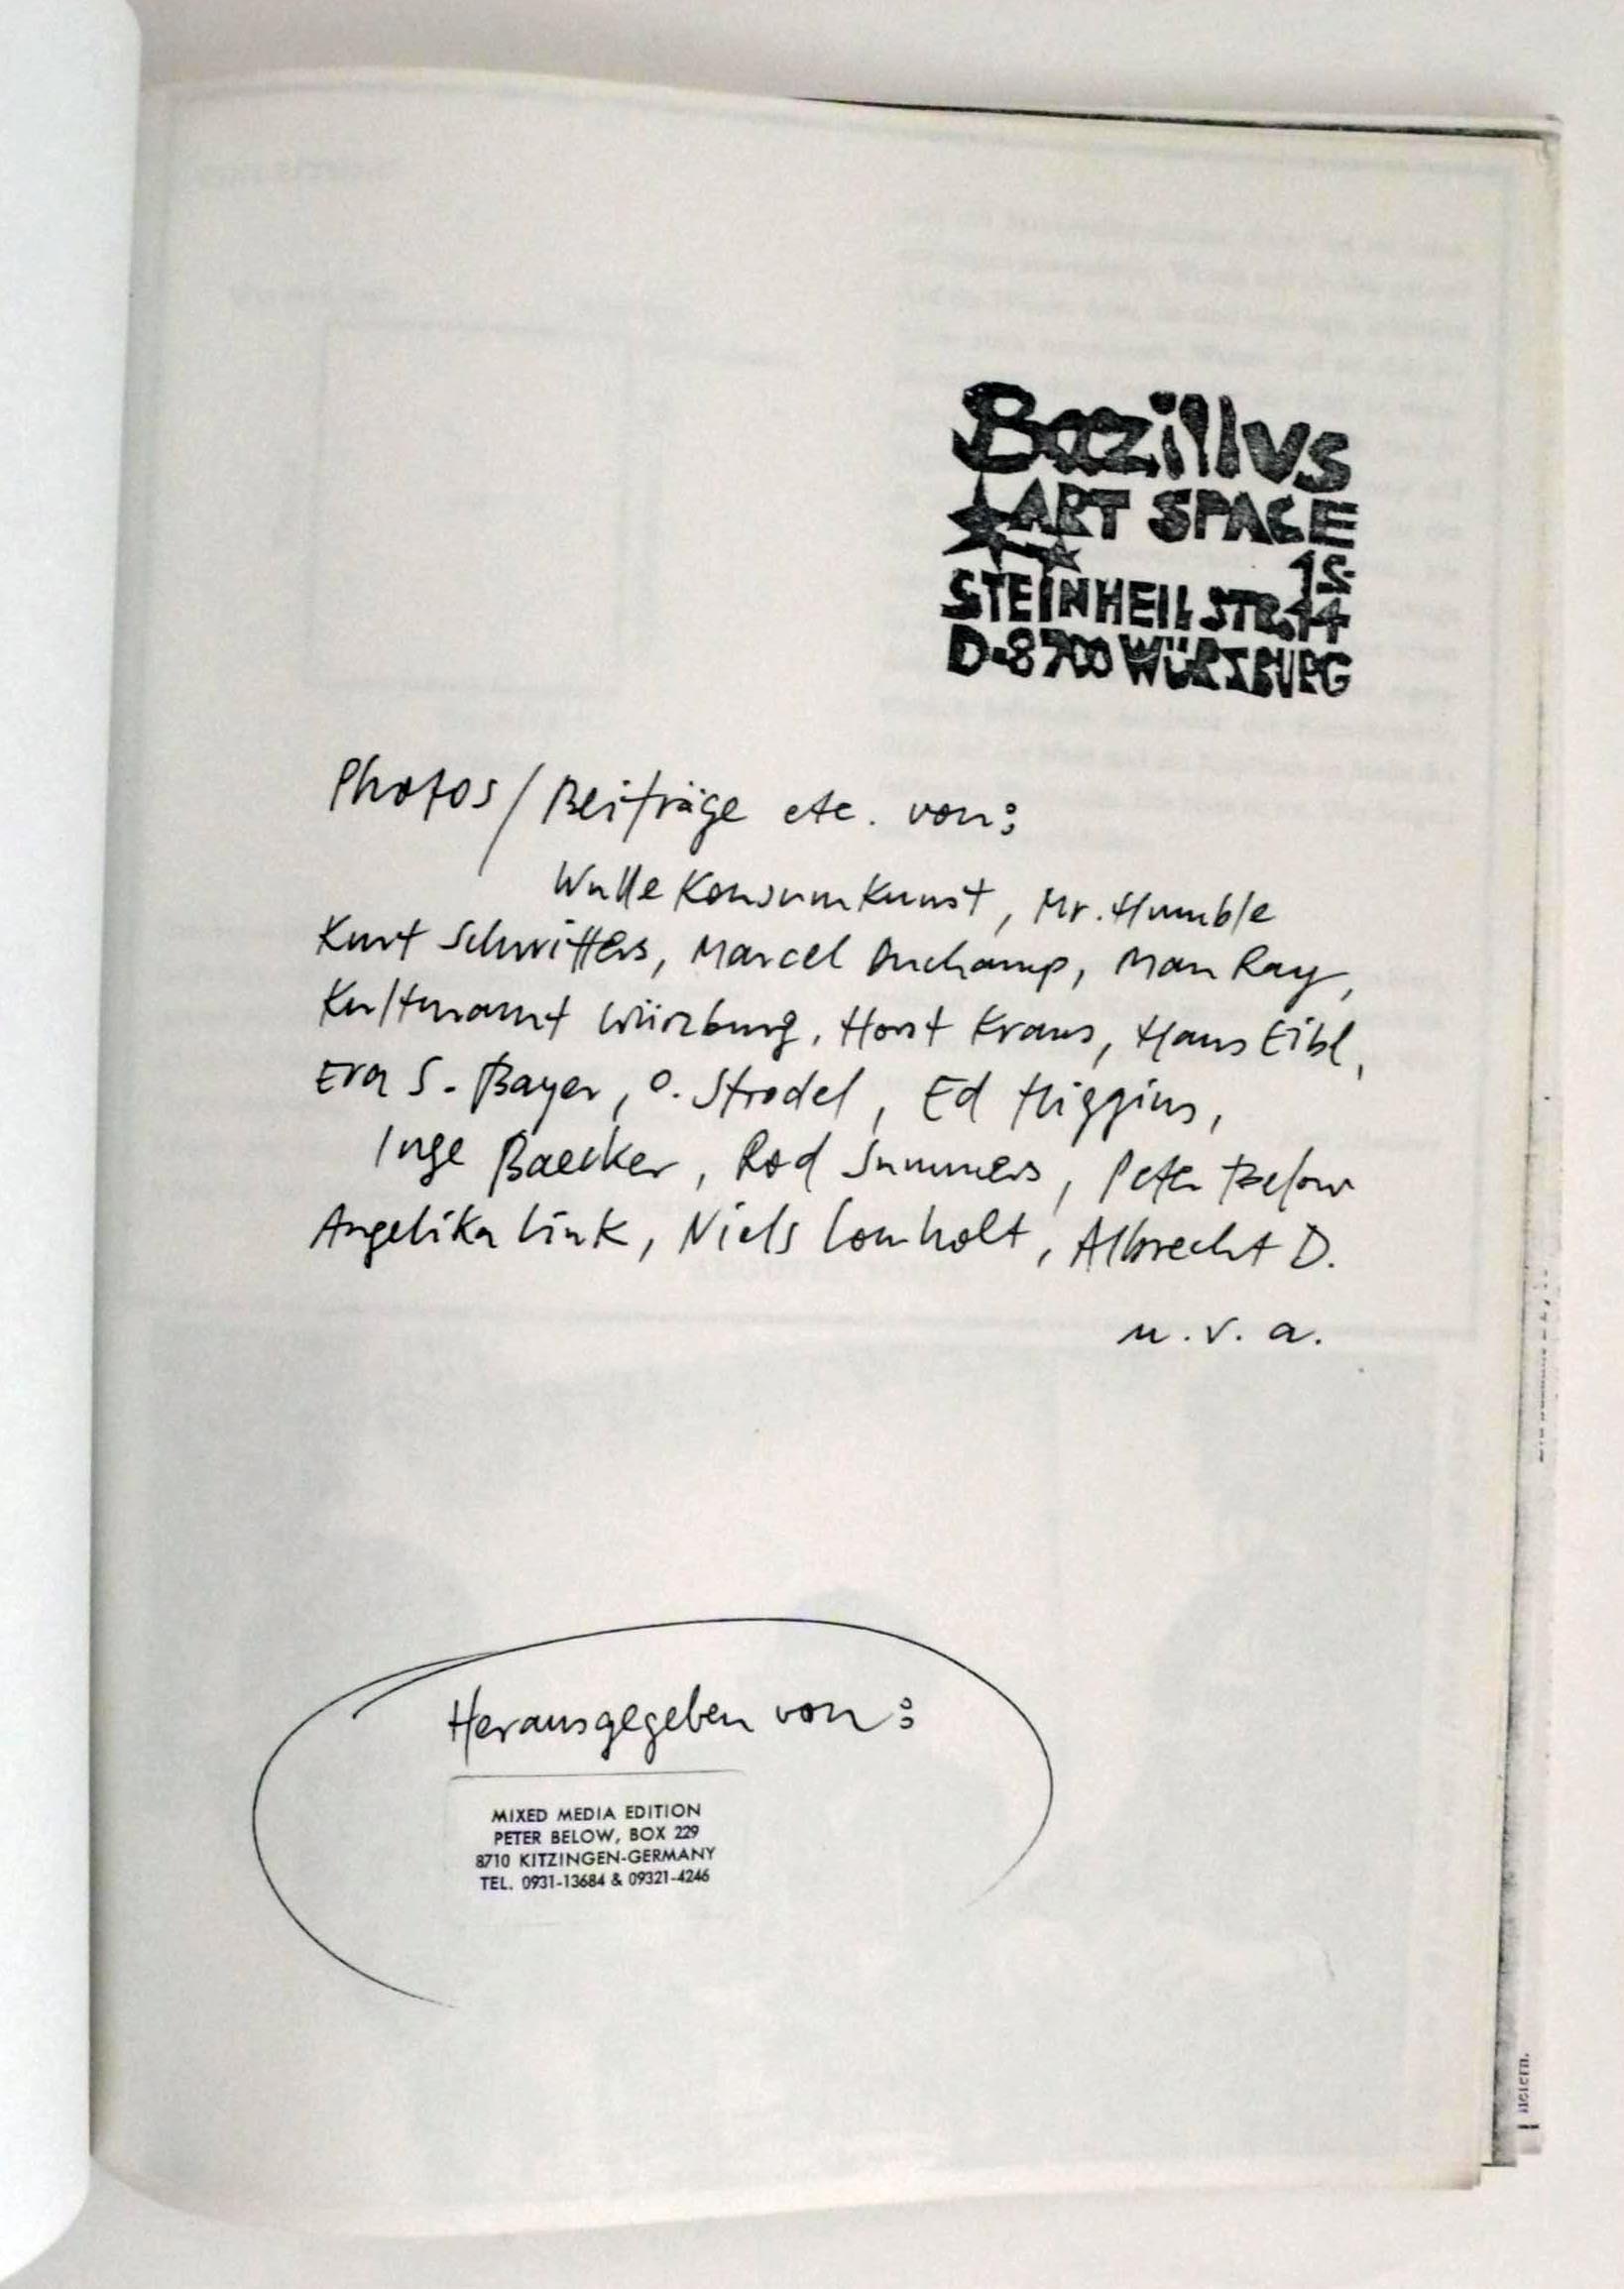 Bazillus
ART SPACE
15
STEINHEIL STR. 14
D-8700 WÜRZBURG
Photos / Beiträge etc. von:
Wulle Konsumkunst, Mr. Humble
Kurt Schwitters, Marcel Duchamp, Man Ray,
Kulturamt Würzburg, Horst Kraus, Hans Eibl,
Eva S. Bayer, O. Strodel, Ed Higgins,
Inge Baecker, Rod Summers, Peter Below
Angelika Link, Niels Lomholt, Albrecht D.
u. v. a.
Herausgegeben von:
MIXED MEDIA EDITION
PETER BELOW, BOX 229
8710 KITZINGEN-GERMANY
TEL. 0931-13684 & 09321-4246